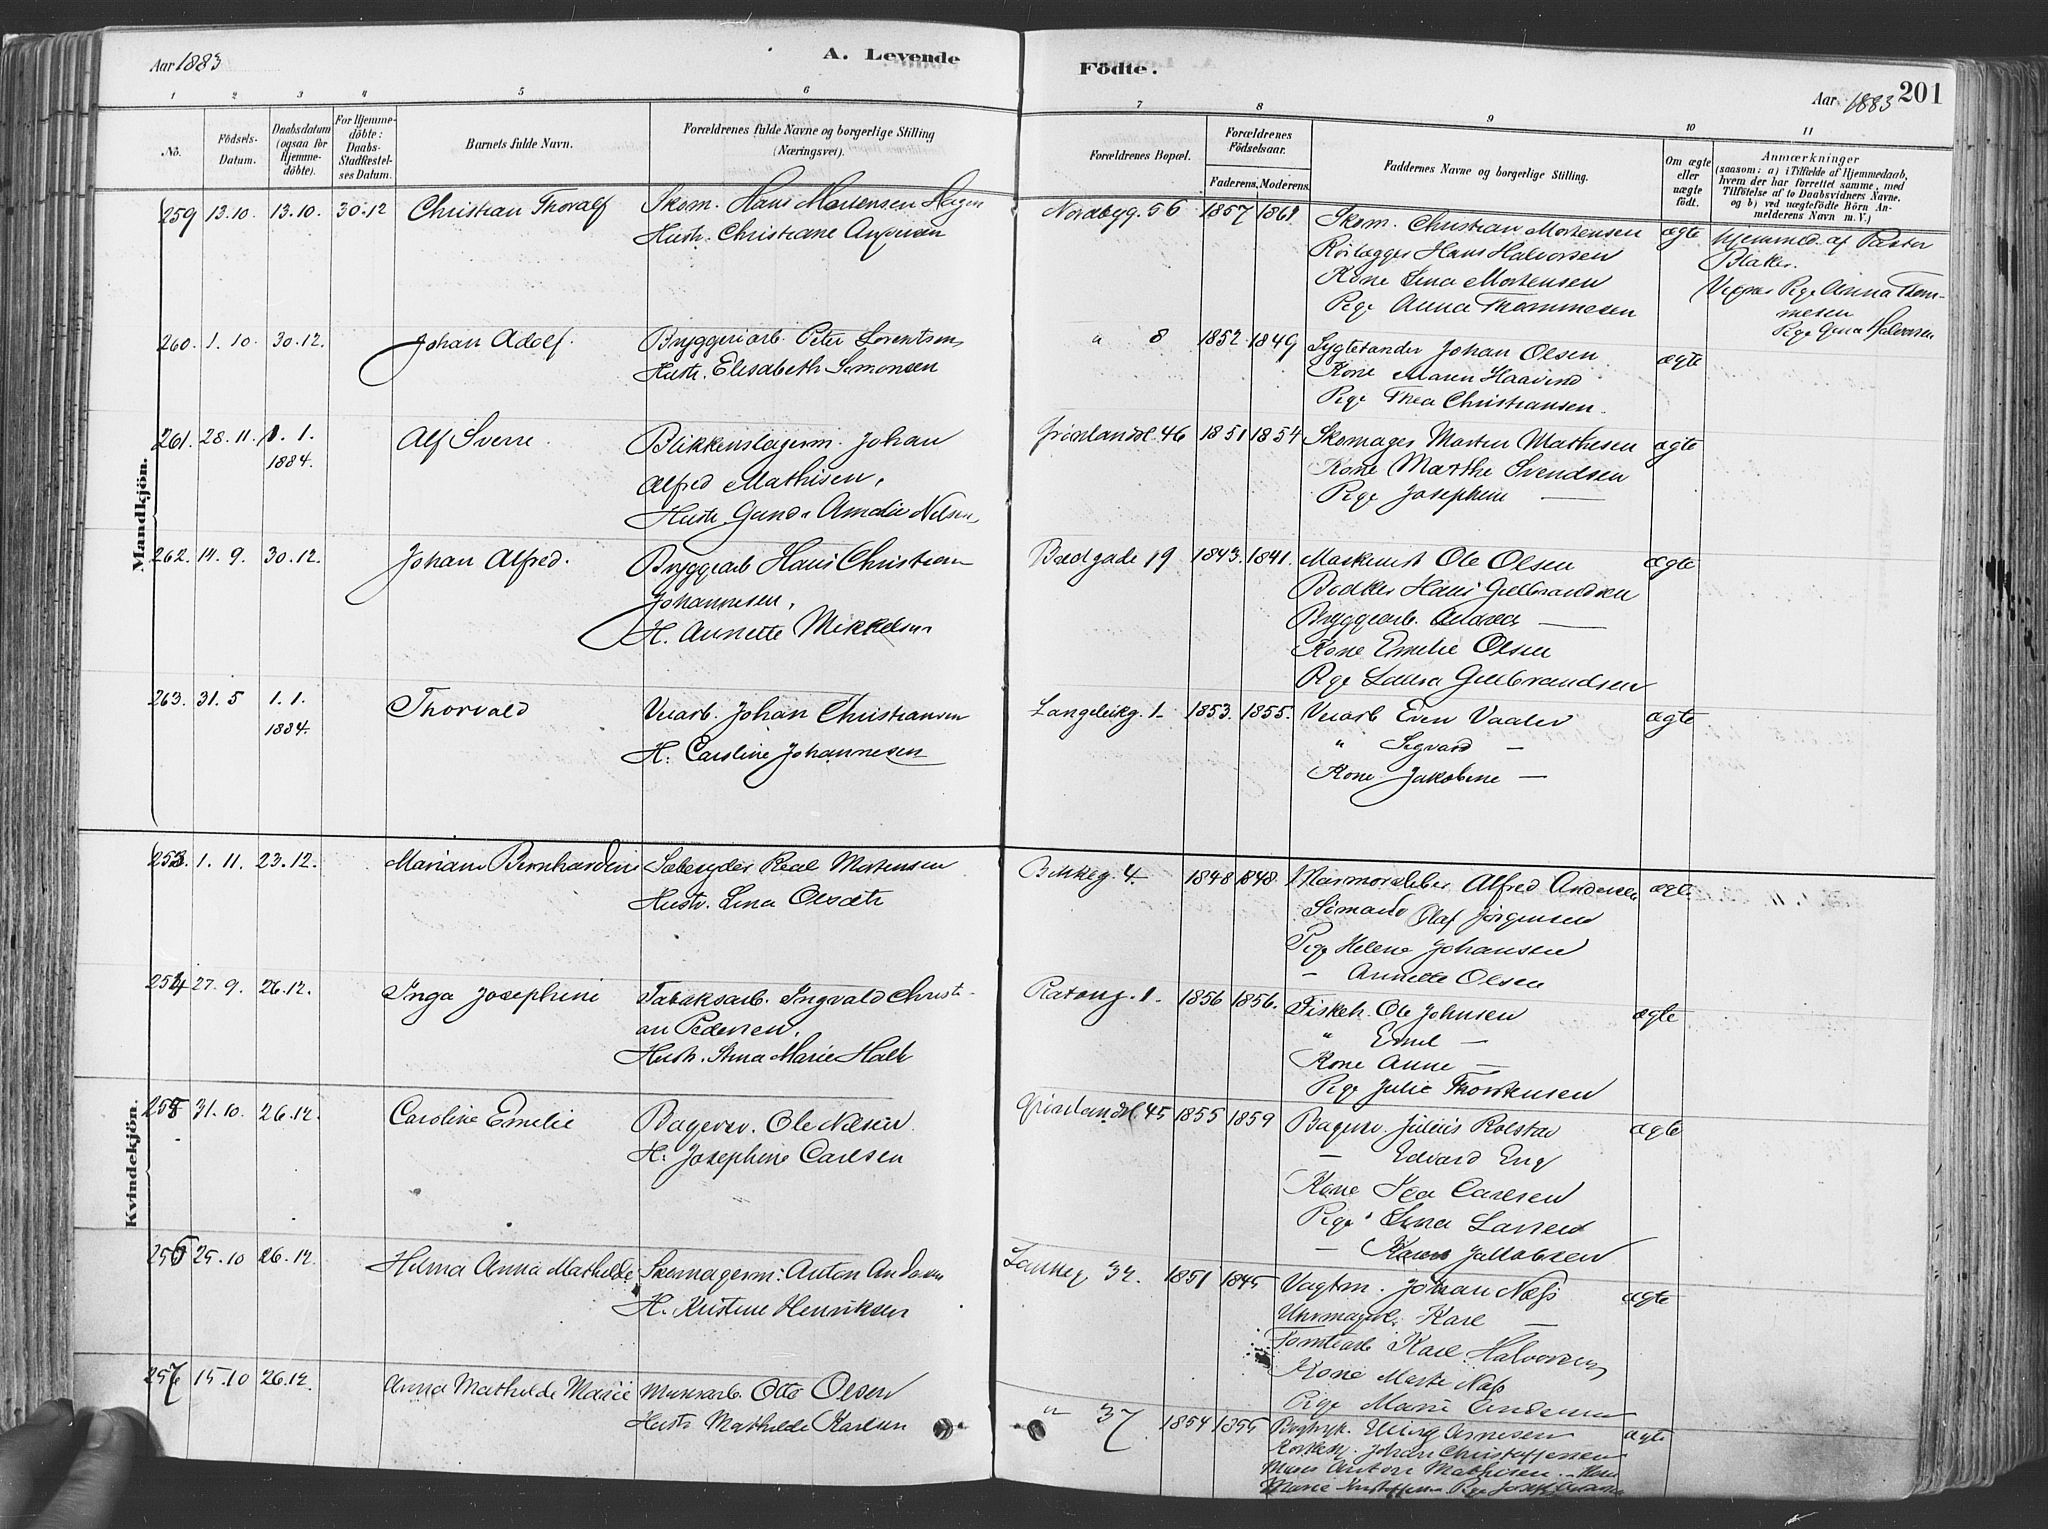 Aar 1883
A. Levende
Födte.
Aar 1883
201
1 2 3 4 5 6 7 8 9 10 11
No.
Födsels-
Datum.
Daabsdatum
(ogsaa for
Hjemme-
döbte).
For Hjemme-
döbte:
Daabs-
Stadfæstel-
ses Datum.
Barnets fulde Navn.
Forældrenes fulde Navne og borgerlige Stilling
(Næringsvei).
Forældrenes Bopæl.
Forældrenes
Födselsaar.
Faderens. Moderens.
Faddernes Navne og borgerlige Stilling.
Om ægte
eller
uægte
født.
Anmærkninger
(saasom: a) i Tilfælde af Hjemmedaab,
hvem der har forrettet samme, med
Tilföielse af to Daabsvidners Navne.
og b) ved uægtefödte Börn An-
melderens Navn m. V.)
Mandkjön.
259 13.10. 13.10. 30.12 Christian Thoralf
Skom. Hans Mortensen Hagen
Hustr. Christiane
Nordbyg. 56 1857 1861.
Skom. Christian Mortensen
Rörlægger Hans Halvorsen
Kone Lina Mortensen
Pige Anna Thommesen
ægte
Hjemmed. af Pastor
Blaker.
Pige Anna Thom-
mesen
Pige Gina Halvorsen
260. 1.10. 30.12. Johan Adolf.
Bryggeriarb. Peter Lorentsen
Hustr. Elisabeth Simonsen
" 8 1852 1849
Johan Olsen
Kone Maren Haavind
Pige Thea Christiansen.
ægte
261. 28.11. 1.1.
1884.
Alf Sverre.
Blikkenslagerm. Johan
Alfred Mathisen,
Hustr. Amalie Nilsen
Grønlandsl. 46 1851 1854
Skomager Martin Mathesen
Kone Marthe Svendsen
Pige Josephine —
ægte
262. 14.9. 30.12. Johan Alfred.
Bryggearb Hans Christian
Johannesen,
H. Annette Mikkelsen
Bredgade 19 1843. 1841.
Maskinist Ole Olsen
Bødker Hans Gulbrandsen
Bryggearb. Andreas —
Kone Emelie Olsen
Pige Laura Gulbrandsen
ægte
263. 31.5 1.1.
1884.
Thorvald
Johan Christiansen
H. Caroline Johannesen
Langeleikg. 1 1853. 1855.
Even Vaaler
" Sigvard —
Kone Jakobine —
ægte
Kvindekjön.
253. 1.11. 23.12. Mariane Bernhardine
Karl Mortensen
Hustr. Lina
4. 1848 1848.
Alfred Andersen
Sömand Olaf Jörgensen
Pige Helene Johansen
— Annette Olsen
ægte
254 27.9. 26.12. Inga Josephine
Tobaksarb. Ingvald Christi-
an Pedersen,
Hustr. Marie
Ratong. 1. 1856 1856.
Fiskeh. Ole Johnsen
" Emil —
Kone Anne —
Pige Julie Thorstensen
ægte
255 31.10. 26.12. Caroline Emelie
Bagersv. Ole Nilsen.
H. Josephine Carlsen
Grönlandsl. 45 1855 1859
Bagersv. Julius Rolstad
— Edvard Eng
Kone Carlsen
Pige Lina Larsen
— Karen Jakobsen
ægte
256 25.10 26.12. Hilma Anna Mathilde
Skomagerm: Anton Andersen
H. Kristine Henriksen
Lakkeg 32. 1851 1845
Vagtm. Johan Næss
Uhrmager. Karl —
Tomtearb Karl Halvorsen
Kone Næss
Pige Marie
ægte
257 15.10 26.12. Anna Mathilde Marie
Otto Olsen
Hustr. Mathilde Karlsen
" 37 1854 1855
Arnesen
Johan Christoffersen
Anton Mathisen.
Marie
ægte